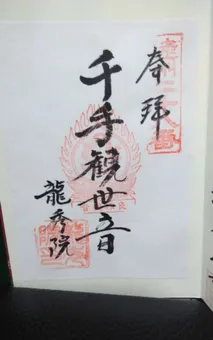 奉拝
千手観世音
龍秀院